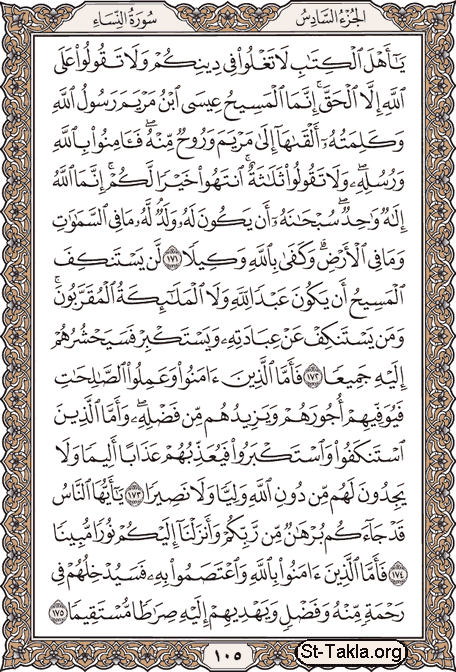 الجزء السادس
سورة النساء
يَـٰٓأَهْلَ ٱلْكِتَـٰبِ لَا تَغْلُوا۟ فِى دِينِكُمْ وَلَا تَقُولُوا۟ عَلَى
ٱللَّهِ إِلَّا ٱلْحَقَّ ۚ إِنَّمَا ٱلْمَسِيحُ عِيسَى ٱبْنُ مَرْيَمَ رَسُولُ ٱللَّهِ
وَكَلِمَتُهُۥٓ أَلْقَىٰهَآ إِلَىٰ مَرْيَمَ وَرُوحٌ مِّنْهُ ۖ فَـَٔامِنُوا۟ بِٱللَّهِ
وَرُسُلِهِۦ ۖ وَلَا تَقُولُوا۟ ثَلَـٰثَةٌ ۚ ٱنتَهُوا۟ خَيْرًا لَّكُمْ ۚ إِنَّمَا ٱللَّهُ
إِلَـٰهٌ وَٰحِدٌ ۖ سُبْحَـٰنَهُۥٓ أَن يَكُونَ لَهُۥ وَلَدٌ ۘ لَّهُۥ مَا فِى ٱلسَّمَـٰوَٰتِ
وَمَا فِى ٱلْأَرْضِ ۗ وَكَفَىٰ بِٱللَّهِ وَكِيلًا ١٧١ لَّن يَسْتَنكِفَ
ٱلْمَسِيحُ أَن يَكُونَ عَبْدًا لِّلَّهِ وَلَا ٱلْمَلَـٰٓئِكَةُ ٱلْمُقَرَّبُونَ ۚ
وَمَن يَسْتَنكِفْ عَنْ عِبَادَتِهِۦ وَيَسْتَكْبِرْ فَسَيَحْشُرُهُمْ
إِلَيْهِ جَمِيعًا ١٧٢ فَأَمَّا ٱلَّذِينَ ءَامَنُوا۟ وَعَمِلُوا۟ ٱلصَّـٰلِحَـٰتِ
فَيُوَفِّيهِمْ أُجُورَهُمْ وَيَزِيدُهُم مِّن فَضْلِهِۦ ۖ وَأَمَّا ٱلَّذِينَ
ٱسْتَنكَفُوا۟ وَٱسْتَكْبَرُوا۟ فَيُعَذِّبُهُمْ عَذَابًا أَلِيمًا وَلَا
يَجِدُونَ لَهُم مِّن دُونِ ٱللَّهِ وَلِيًّا وَلَا نَصِيرًا ١٧٣ يَـٰٓأَيُّهَا ٱلنَّاسُ
قَدْ جَآءَكُم بُرْهَـٰنٌ مِّن رَّبِّكُمْ وَأَنزَلْنَآ إِلَيْكُمْ نُورًا مُّبِينًا
١٧٤ فَأَمَّا ٱلَّذِينَ ءَامَنُوا۟ بِٱللَّهِ وَٱعْتَصَمُوا۟ بِهِۦ فَسَيُدْخِلُهُمْ فِى
رَحْمَةٍ مِّنْهُ وَفَضْلٍ وَيَهْدِيهِمْ إِلَيْهِ صِرَٰطًا مُّسْتَقِيمًا ١٧٥
١٠٥
St-Takla.org